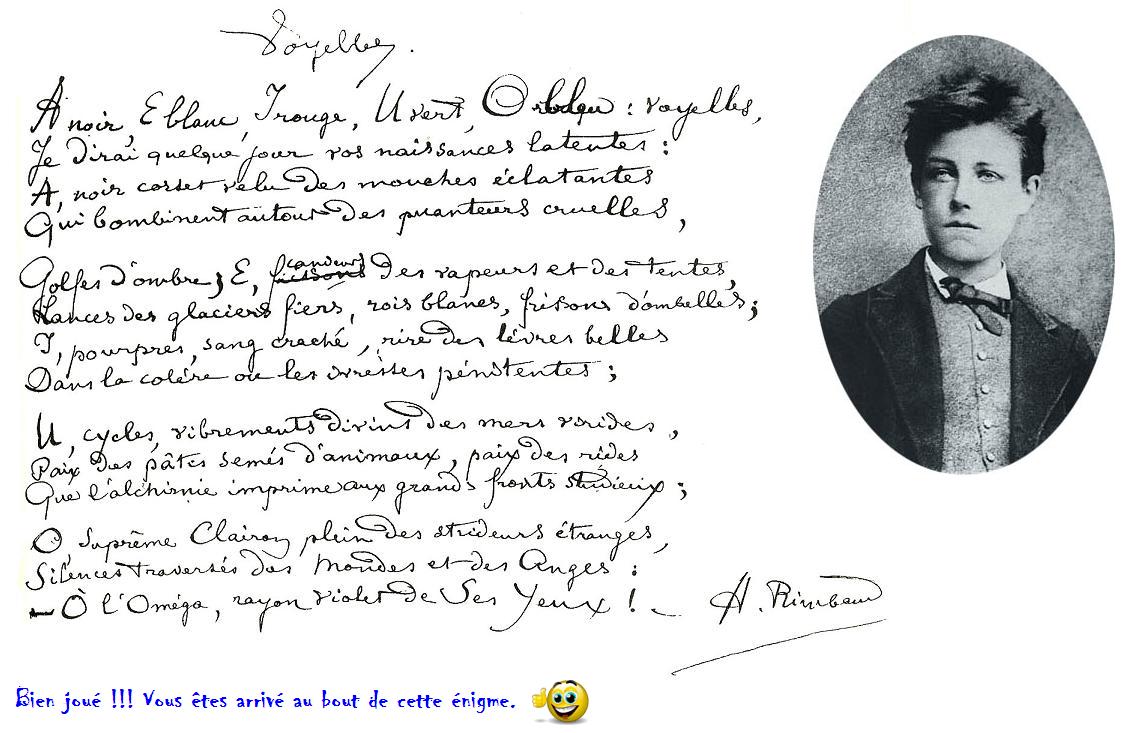 Voyelles.
A noir, E blanc, I rouge, U vert, O bleu : voyelles,
Je dirai quelque jour vos naissances latentes :
A, noir corset velu des mouches éclatantes
Qui bombinent autour des puanteurs cruelles,
Golfes d'ombre ; E, candeurs des vapeurs et des tentes,
Lances des glaciers fiers, rois blancs, frissons d'ombelles ;
I, pourpres, sang craché, rire des lèvres belles
Dans la colère ou les ivresses pénitentes ;
U, cycles, vibrements divins des mers virides,
Paix des pâtis semés d'animaux, paix des rides
Que l'alchimie imprime aux grands fronts studieux ;
O, Suprême Clairon plein des strideurs étranges,
Silences traversés des Mondes et des Anges :
— Ô l'Oméga, rayon violet de Ses Yeux ! —
A. Rimbaud
Bien joué !!! Vous êtes arrivé au bout de cette énigme.